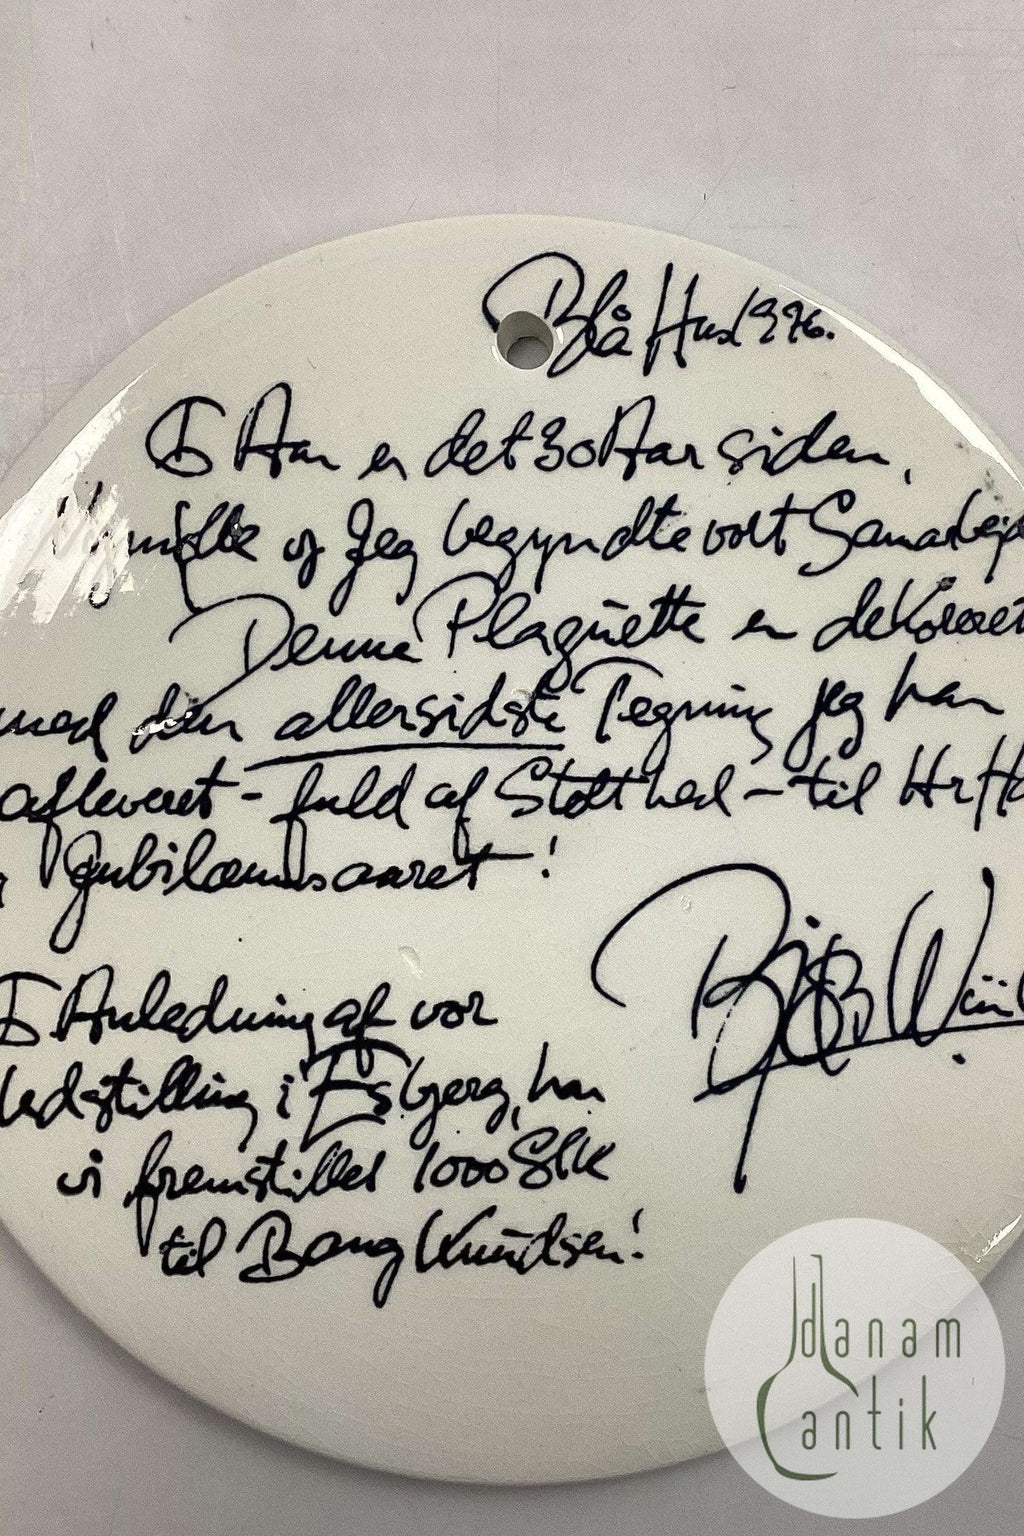 Blå Hus 1976.
I Aar er det 30 Aar siden,
og Jeg begyndte vort Samarbejd
Denne Plaquette er dekoreret
med den allersidste Tegning jeg har
afleveret - fuld af Stolthed - til Hr
Jubilæumsaaret!
Bjørn Wiinb
I Anledning af vor
Udstilling i Esbjerg, har
vi fremstillet 1000 Stk
til Bang Knudsen!
danam
antik